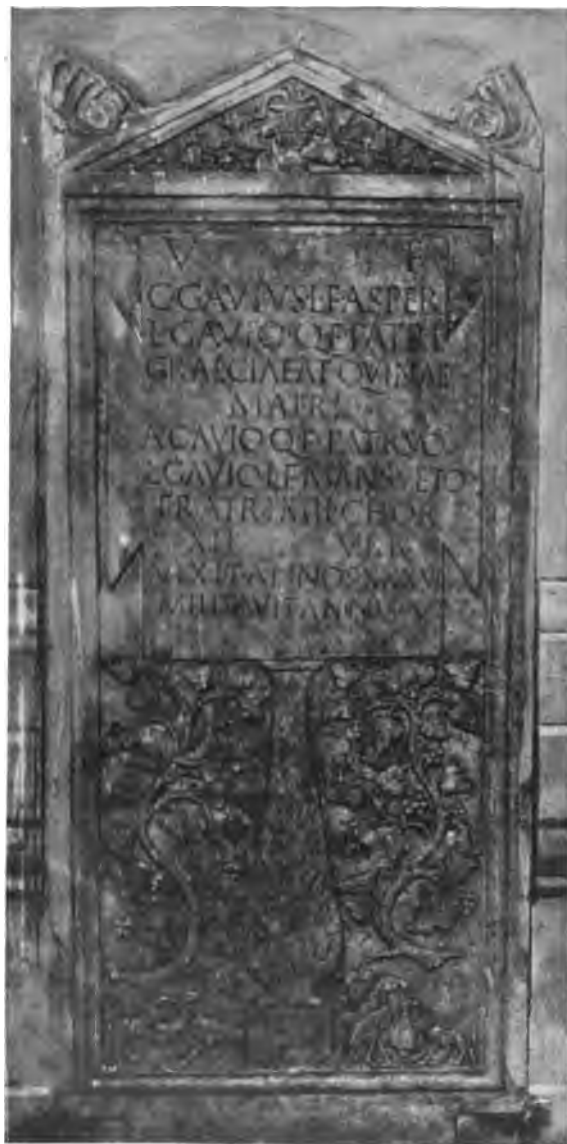 V F
C·GAVIVS·L·F·ASPER
L·GAVIO·Q·F·PATRI
GRAECIAE
MATRI
A·GAVIO·Q·F·PATRVO
L·GAVIO·L·F·MANSVETO
FRATRI·MIL·CHOR
XII
VIXIT·ANNOS
MILITAVIT·ANNOS·V